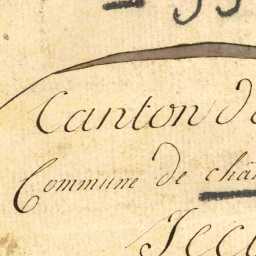 Canton d
Commune de châ
Sec